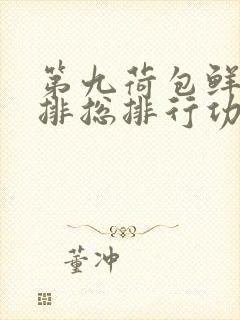 第九荷包鲜
排总排行功
董冲